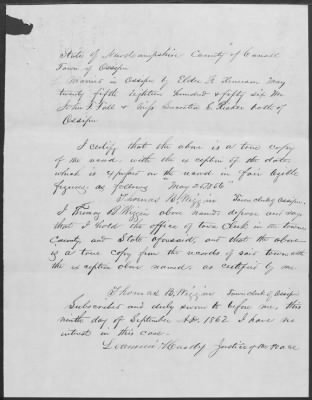 State of Newhampshire County of Carroll
Town of Ossipee
Married in Ossipee by Elder
May
twenty fifth Eighteen hundred & fifty six Mr
John F. & Miss E. both of
Ossipee
I certify that the above is a true copy
of the record with the exception of the date
which is expressed on the record in fair legible
figures as follows "May 25 1856"
Thomas B. Wiggin Town clerk of Ossipee
I Thomas B Wiggin above named depose and say
that I hold the office of town Clerk in the town
County and State aforesaid, and that the above
is a true copy from the records of said town with
the exception above named, as certified by me
Thomas B. Wiggin Town clerk of Ossipee
Subscribed and duly sworn to before me, this
ninth day of September A.D. 1862 I have no
interest in this case.
Justice of the Peace